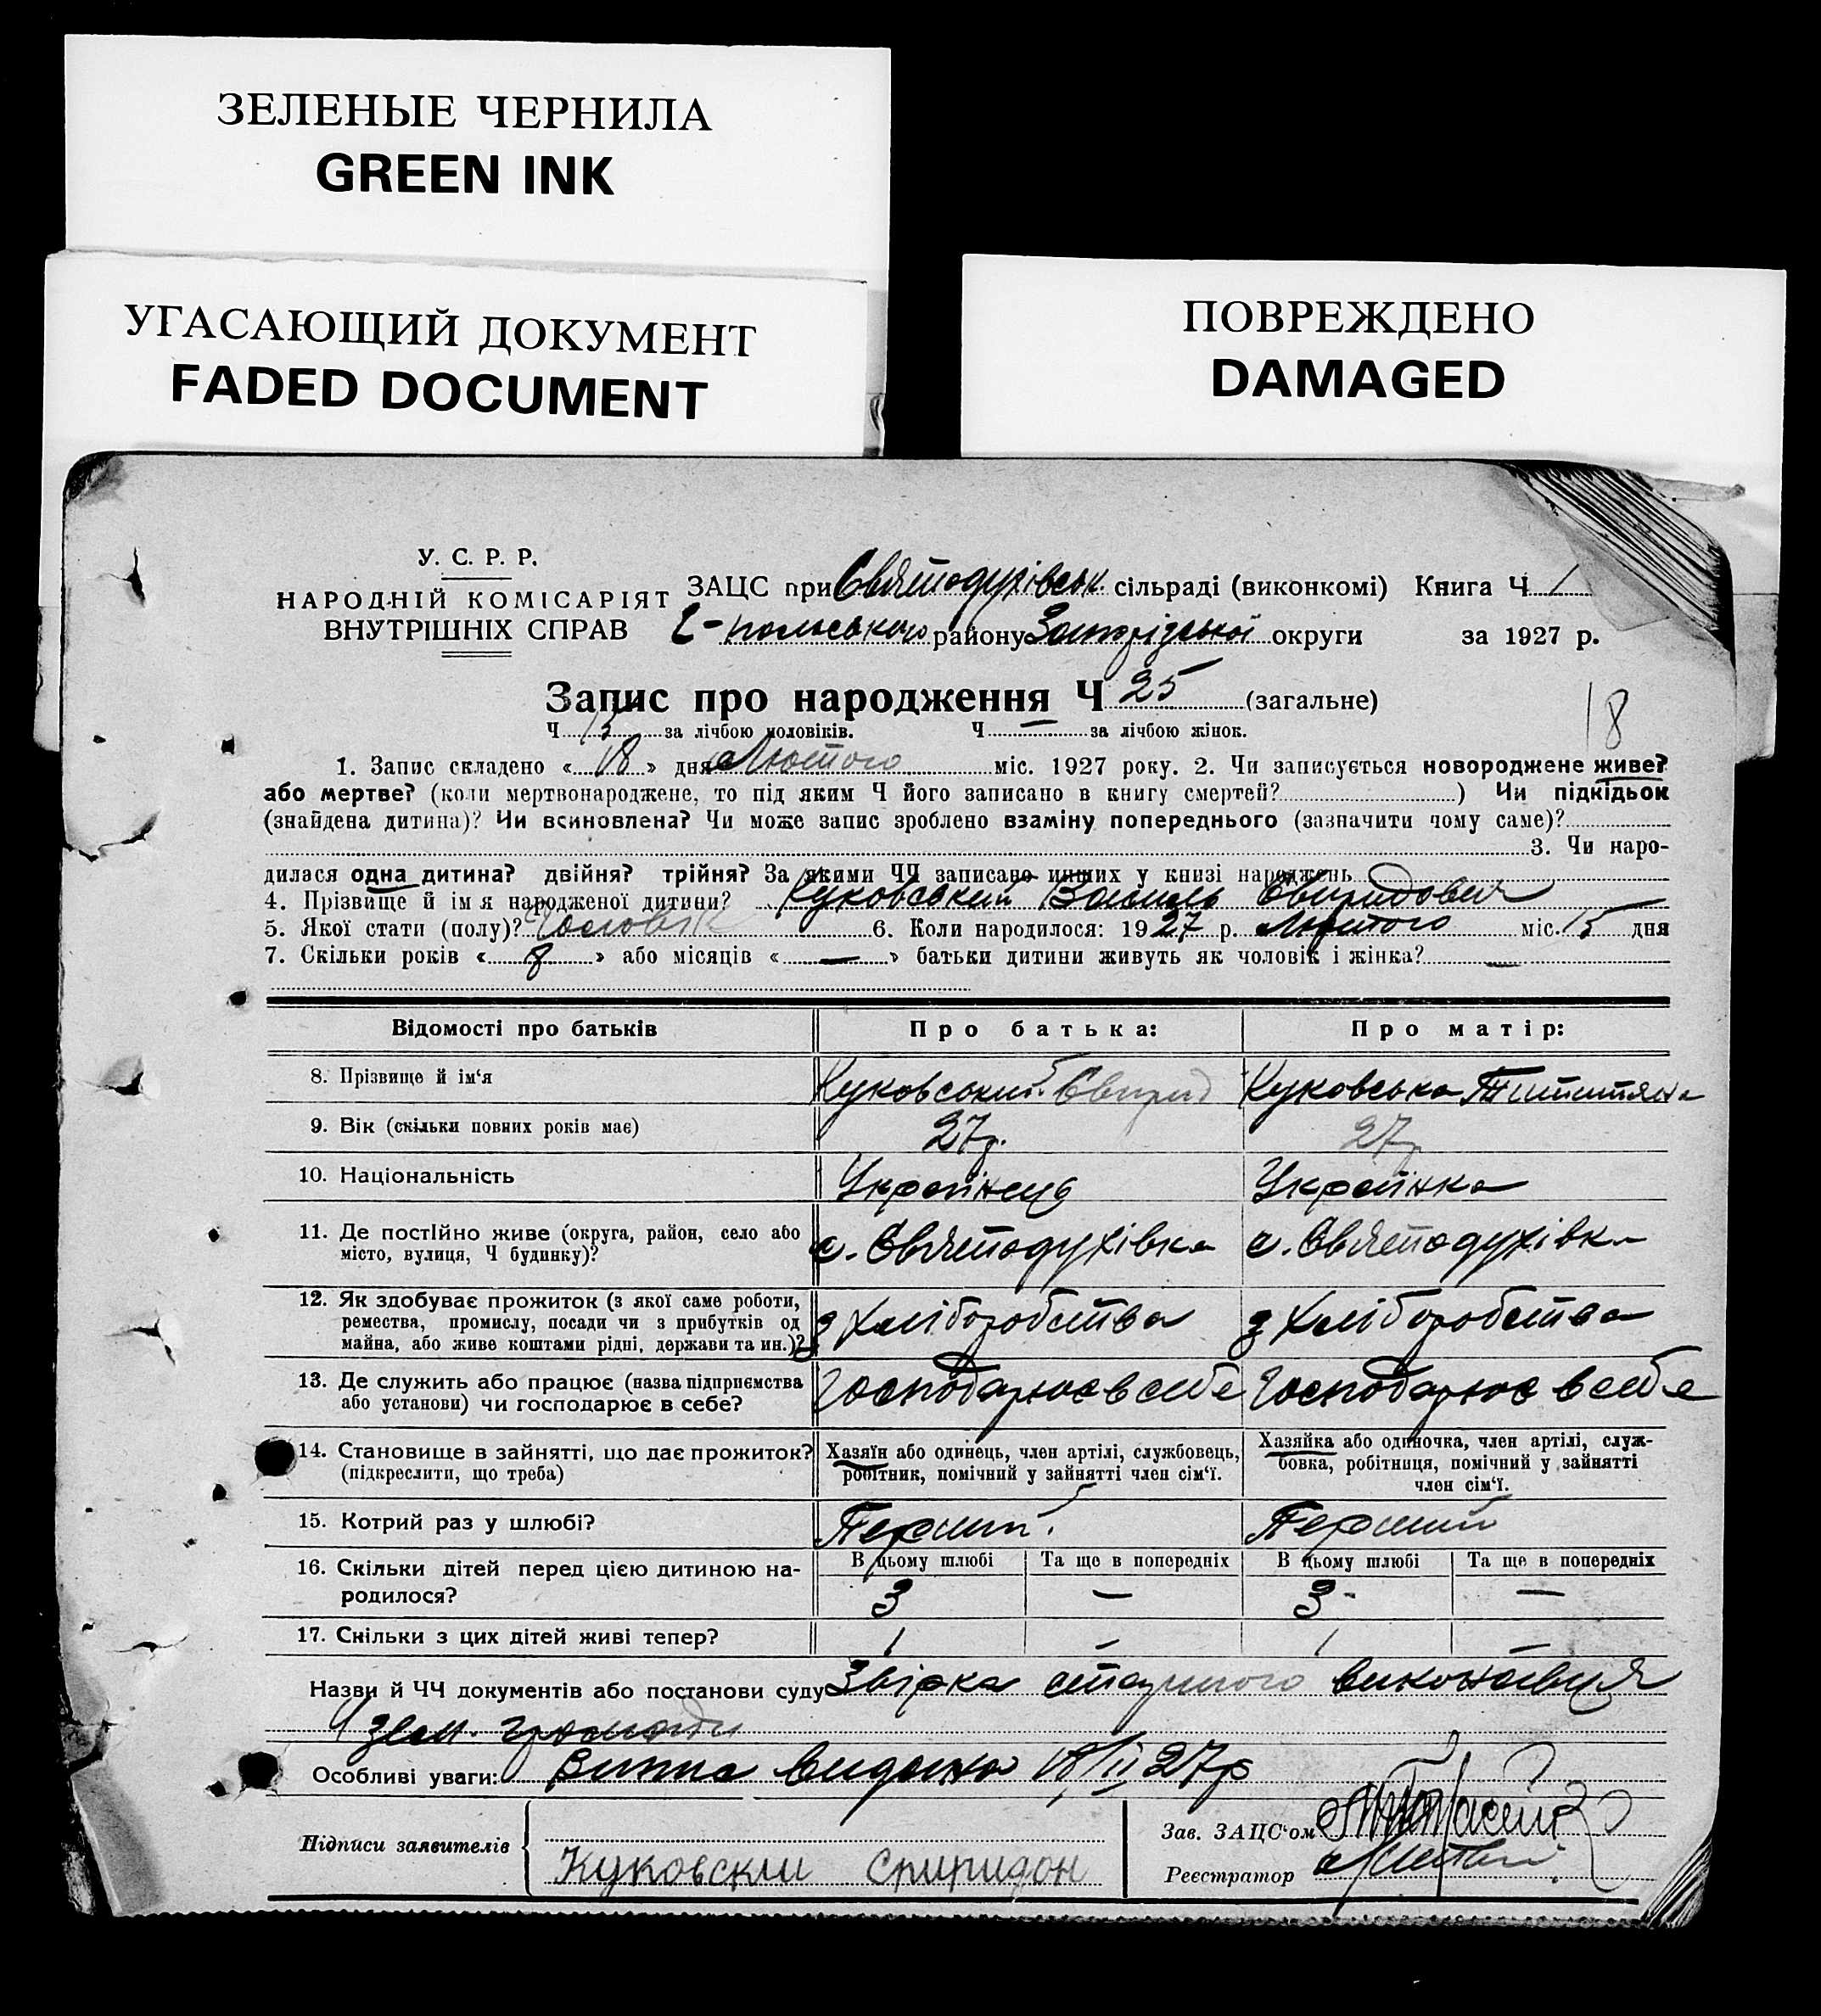 ЗЕЛЕНЫЕ ЧЕРНИЛА
GREEN INK
УГАСАЮЩИЙ ДОКУМЕНТ
FADED DOCUMENT
ПОВРЕЖДЕНО
DAMAGED
У. С. Р. Р.
НАРОДНІЙ КОМІСАРІЯТ
ВНУТРІШНІХ СПРАВ
ЗАЦС при Святодухівськ. сільраді (виконкомі) Книга Ч 1
-польського району Запорізької округи за 1927 р.
Запис про народження Ч 25 (загальне)
18
Ч 13 за лічбою чоловіків. Ч — за лічбою жінок.
1. Запис складено « 18 » дня Лютого міс. 1927 року. 2. Чи записується новороджене живе?
або мертве? (коли мертвонароджене, то під яким Ч його записано в книгу смертей? ) Чи підкідьок
(знайдена дитина)? Чи всиновлена? Чи може запис зроблено взаміну попереднього (зазначити чому саме)?
3. Чи наро-
дилася одна дитина? двійня? трійня? За якими ЧЧ записано инших у книзі народжень
4. Прізвище й ім я народженої дитини? Куковський Василь Свиридович
5. Якої стати (полу)? Чоловік 6. Коли народилося: 1927 р. Лютого міс. 15 дня
7. Скільки років « 8 » або місяців « — » батьки дитини живуть як чоловік і жінка? —
Відомості про батьків Про батька: Про матір:
8. Прізвище й ім‘я Куковський Свирид Куковська
9. Вік (скільки повних років має) 27р. 27р
10. Національність Українець Українка
11. Де постійно живе (округа, район, село або
місто, вулиця, Ч будинку)? с. Святодухівка с. Святодухівка
12. Як здобуває прожиток (з якої саме роботи,
ремества, промислу, посади чи з прибутків од
майна, або живе коштами рідні, держави та ин.)? з Хліборобства з Хліборобства
13. Де служить або працює (назва підприємства
або установи) чи господарює в себе? Господарює в себе Господарює в себе
14. Становище в зайнятті, що дає прожиток?
(підкреслити, що треба)
Хазяїн або одинець, член артілі, службовець,
робітник, помічний у зайнятті член сім‘ї.
Хазяйка або одиночка, член артілі, служ-
бовка, робітниця, помічний у зайнятті
член сім‘ї.
15. Котрий раз у шлюбі? Перший. Перший
16. Скільки дітей перед цією дитиною на-
родилося?
В цьому шлюбі Та ще в попередніх В цьому шлюбі Та ще в попередніх
3 — 3 —
17. Скільки з цих дітей живі тепер? 1 — 1 —
Назви й ЧЧ документів або постанови суду виконавця
зем. громади
Особливі уваги: Випис видано 18/II 27р
Підписи заявителів
Куковскии Спиридон
Зав. ЗАЦС‘ом
Реєстратор